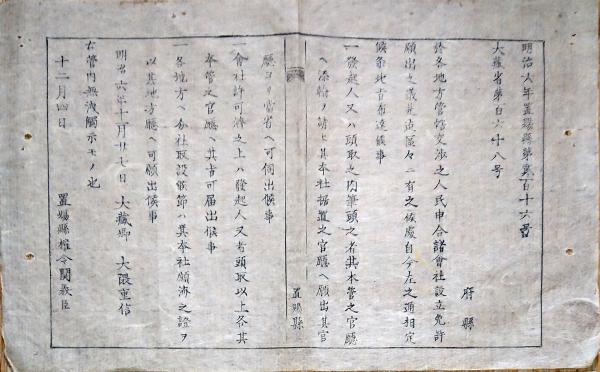 明治六年置賜縣第貳百十六号
大藏省第百六十八号
府縣
於各地方管轄交渉之人民申合諸會社設立免許
願出之儀是迠區々ニ有之候處自今左之通相定
候条此旨布達候事
一發起人又ハ頭取之内筆頭之者其本管之官廳
ヘ添翰ヲ請ヒ其本社据置之官廳ヘ願出其官
置賜縣
廳ヨリ當省ヘ可伺出候事
會社許可濟之上ハ發起人又者頭取以上各其
本管之官廳ヘ其旨可届出候事
一各地方ヘ分社取設候節ハ其本社願濟之證ヲ
以其地方廳ヘ可願出候事
明治六年十一月廿七日 大藏卿 大隈重信
右管内無洩觸示モノ也
十二月四日 置賜縣権令関義臣